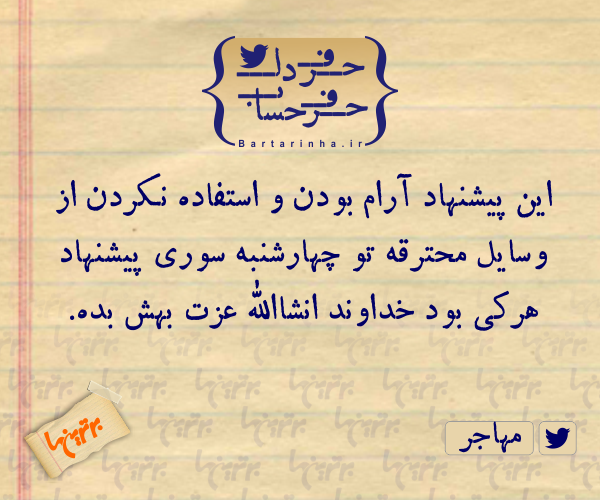 حرف دل
حرف حساب
Bartarinha.ir
این پیشنهاد آرام بودن و استفاده نکردن از
وسایل محترقه تو چهارشنبه سوری پیشنهاد
هرکی بود خداوند انشاالله عزت بهش بده.
مهاجر
برترین‌ها